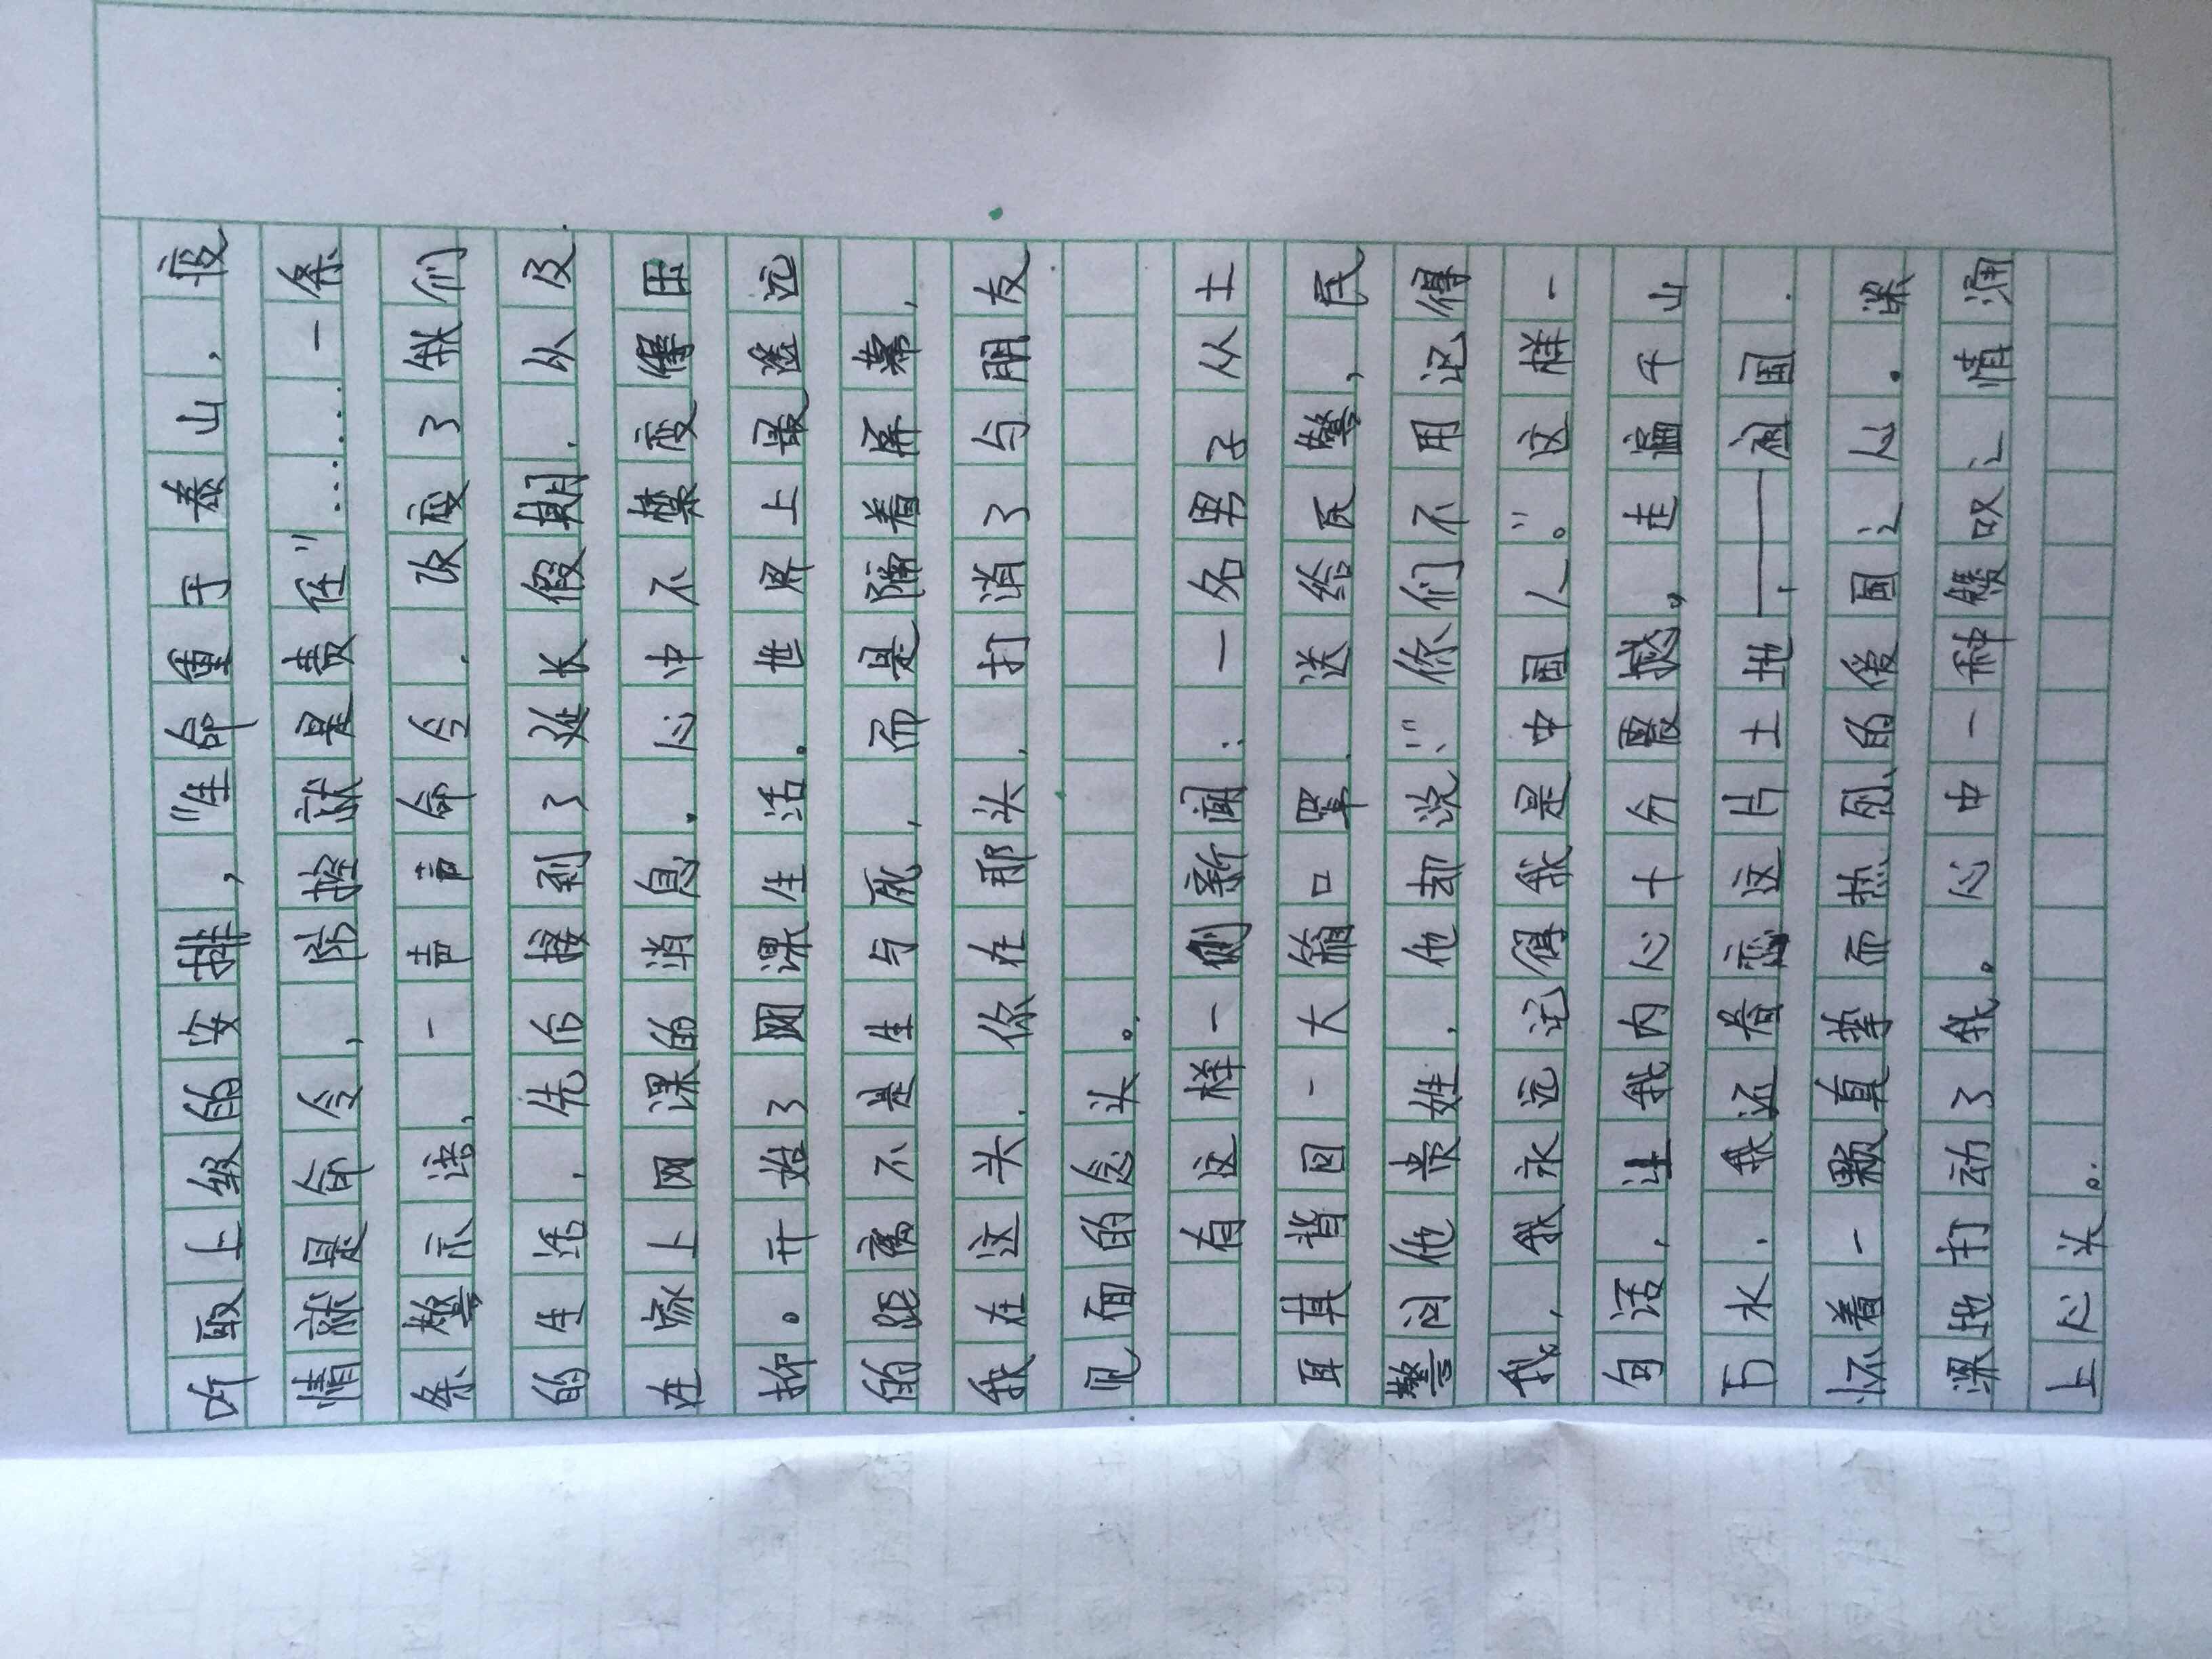 听取上级的安排，“生命重于泰山，疫
情就是命令，防控就是责任”……一条
条警示语，一声声命令，改变了我们
的生活，先后接到了延长假期，以及
在家上网课的消息，心中不禁变得压
抑。开始了网课生活。世界上最遥远
的距离不是生与死，而是隔着屏幕，
我在这头，你在那头，打消了与朋友
见面的念头。
有这样一则新闻：一名男子从土
耳其背回一大箱口罩，送给民警，民
警问他贵姓，他却说：“你们不用记得
我，我永远记得我是中国人。”这样一
句话，让我内心十分震撼。走遍千山
万水，我还眷恋这片土地——祖国，
怀着一颗真挚而热烈的爱国之心。深
深地打动了我。心中一种赞叹之情涌
上心头。